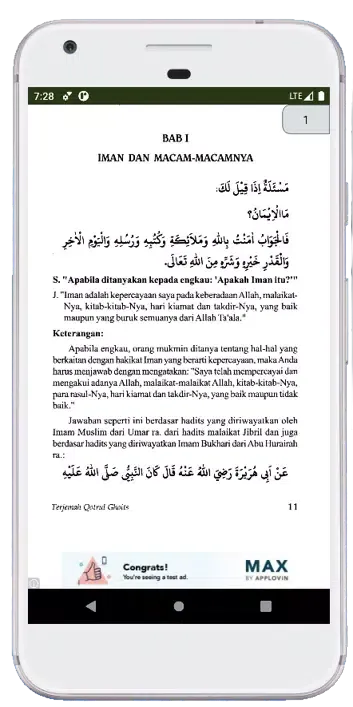 7:28
LTE
1
BAB I
IMAN DAN MACAM-MACAMNYA
مَسْئَلَةٌ إِذَا قِيْلَ لَكَ:
مَاالْإِيْمَانُ؟
فَالْجَوَابُ اٰمَنْتُ بِاللهِ وَمَلَائِكَتِهِ وَكُتُبِهِ وَرُسُلِهِ وَالْيَوْمِ الْاٰخِرِ
وَالْقَدْرِ خَيْرِهِ وَشَرِّهِ مِنَ اللهِ تَعَالَى.
S. "Apabila ditanyakan kepada engkau: 'Apakah Iman itu?'"
J. "Iman adalah kepercayaan saya pada keberadaan Allah, malaikat-
Nya, kitab-kitab-Nya, hari kiamat dan takdir-Nya, yang baik
maupun yang buruk semuanya dari Allah Ta'ala."
Keterangan:
Apabila engkau, orang mukmin ditanya tentang hal-hal yang
berkaitan dengan hakikat Iman yang berarti kepercayaan, maka Anda
harus menjawab dengan mengatakan: "Saya telah mempercayai dan
mengakui adanya Allah, malaikat-malaikat Allah, kitab-kitab-Nya,
para rasul-Nya, hari kiamat dan takdir-Nya, yang baik maupun tidak
baik."
Jawaban seperti ini berdasar hadits yang diriwayatkan oleh
Imam Muslim dari Umar ra. dari hadits malaikat Jibril dan juga
berdasar hadits yang diriwayatkan Imam Bukhari dari Abu Hurairah
ra.:
عَنْ اَبِي هُرَيْرَةَ رَضِيَ اللهُ عَنْهُ قَالَ كَانَ النَّبِيُّ صَلَّى اللهُ عَلَيْهِ
Terjemah Qotrul Ghoits 11
Congrats!
You're seeing a test ad.
MAX
BY APPLOVIN